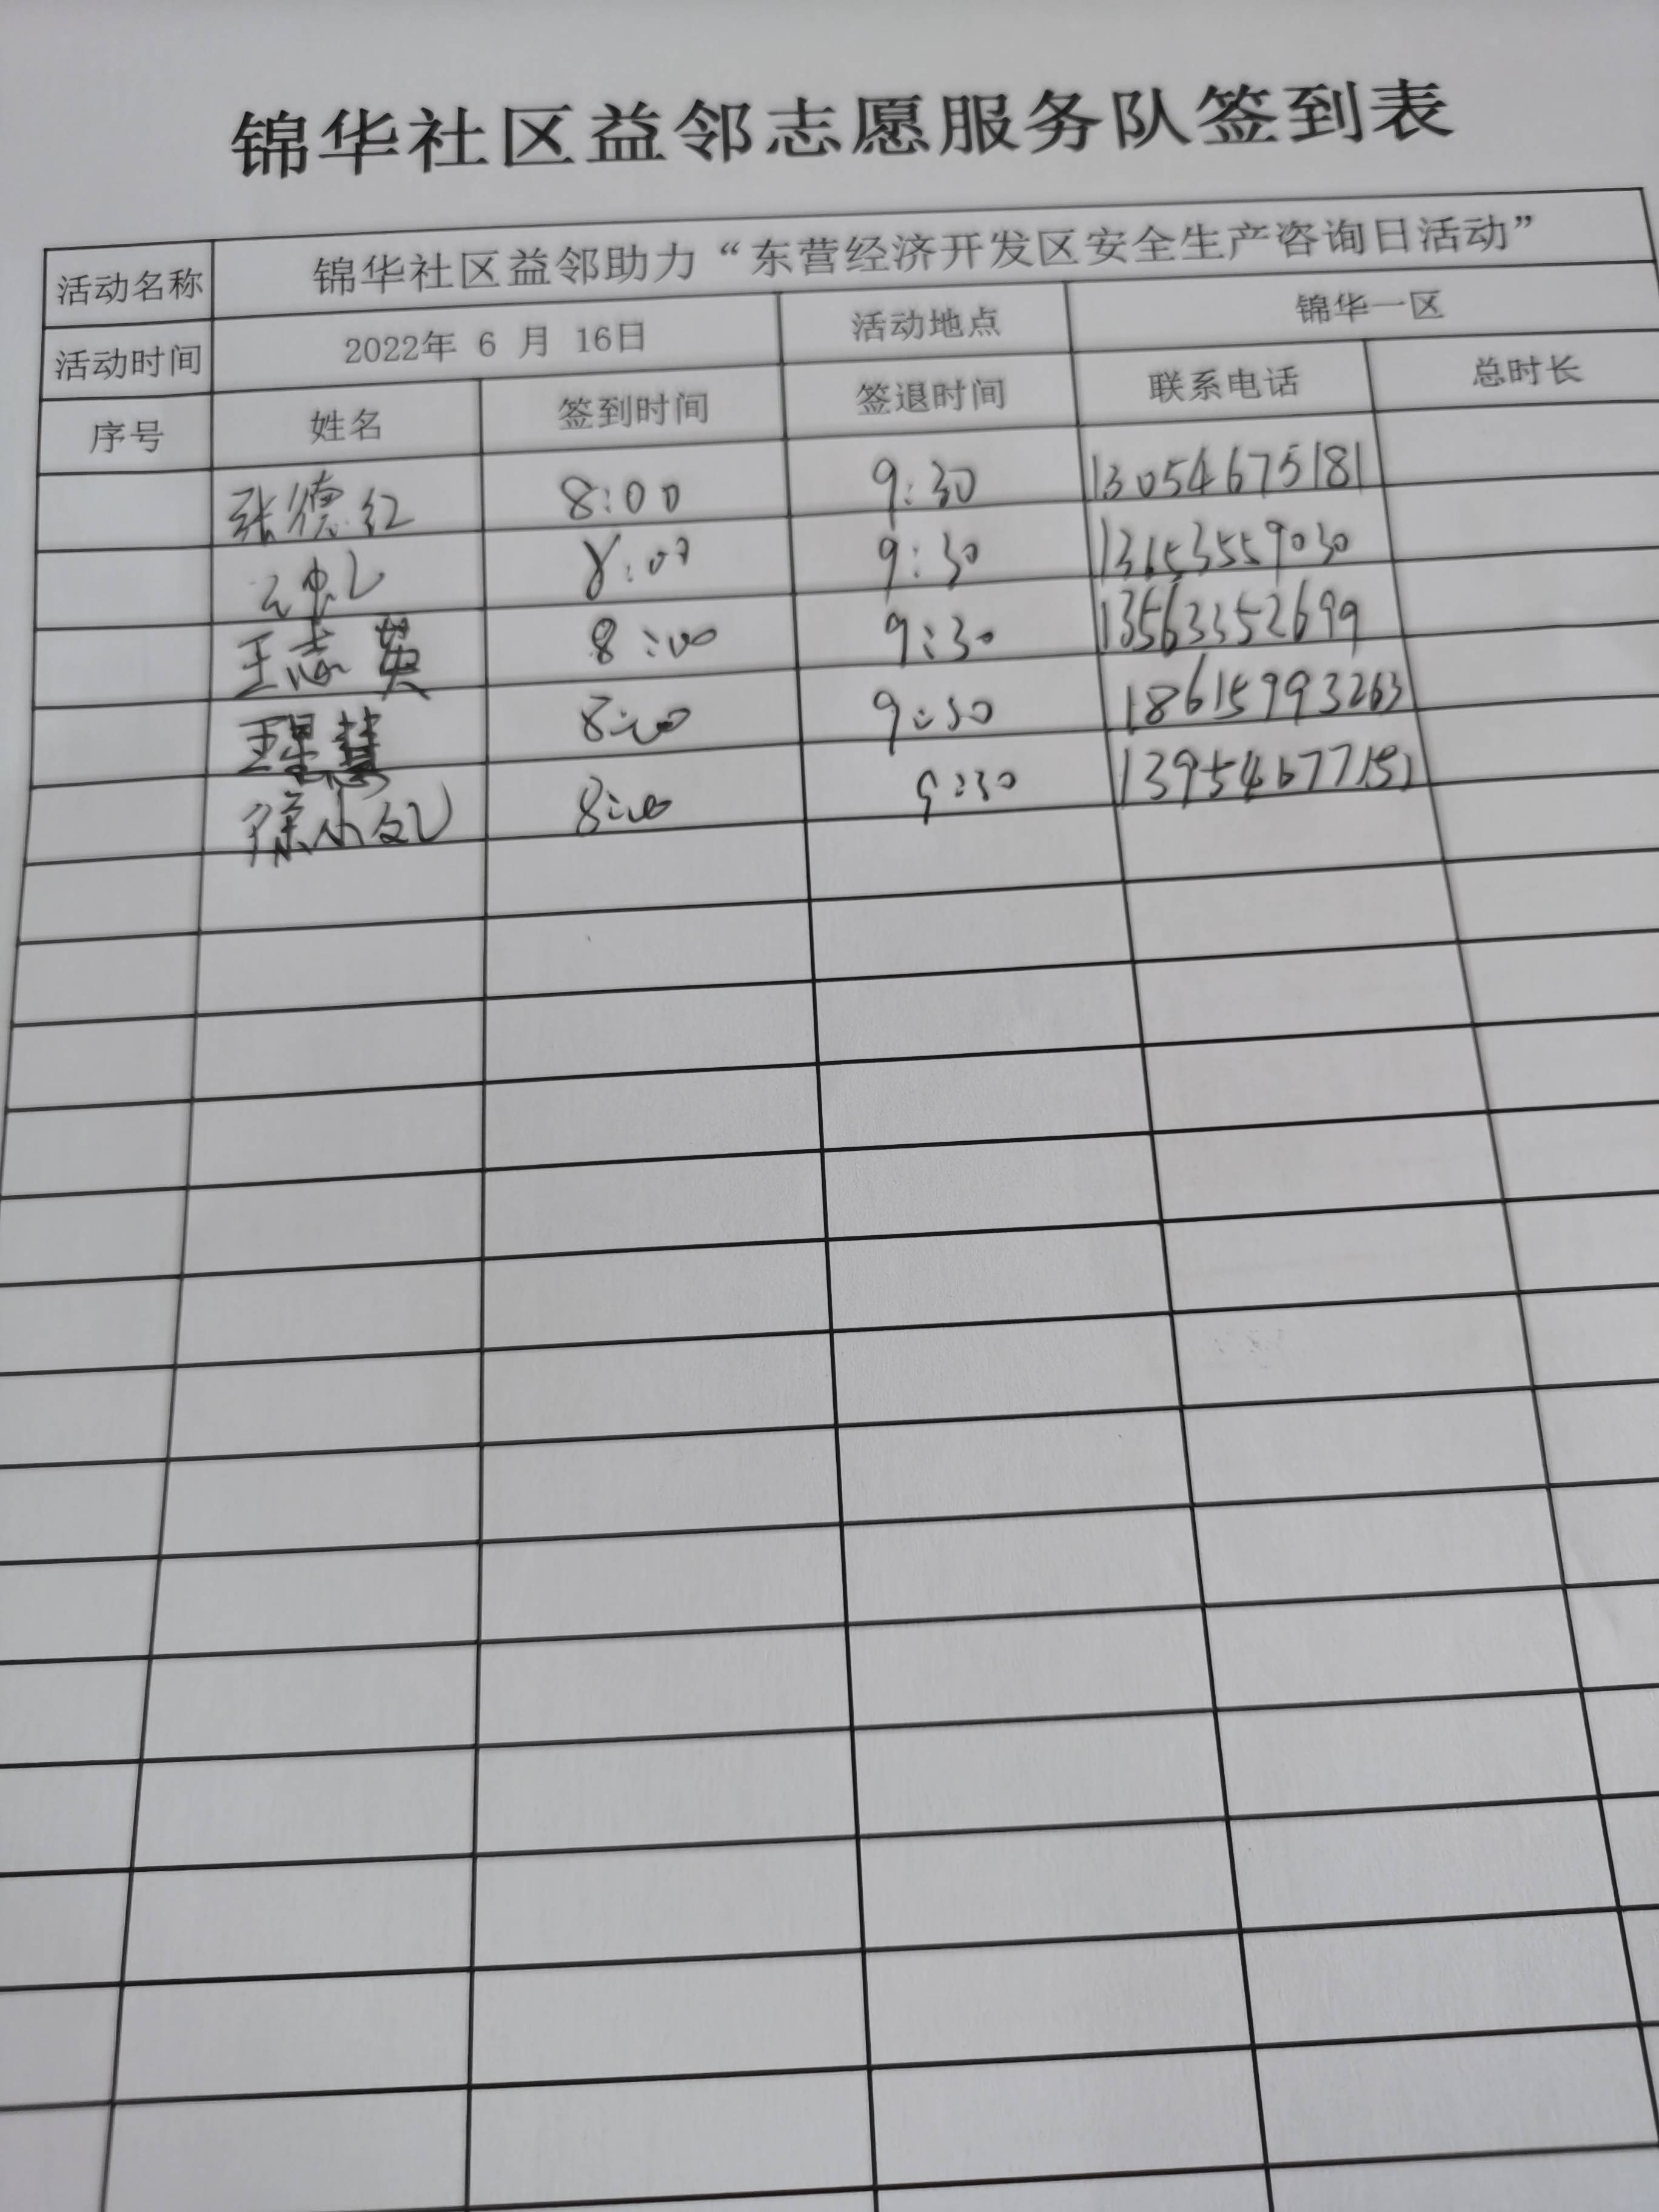 锦华社区益邻志愿服务队签到表
活动名称 锦华社区益邻助力“东营经济开发区安全生产咨询日活动”
活动时间 2022年 6 月 16日 活动地点 锦华一区
序号 姓名 签到时间 签退时间 联系电话 总时长
张德红 8:00 9:30 13054675181
8:00 9:30 13653559030
王志英 8:00 9:30 13563352699
8:00 9:30 18615993263
8:00 9:30